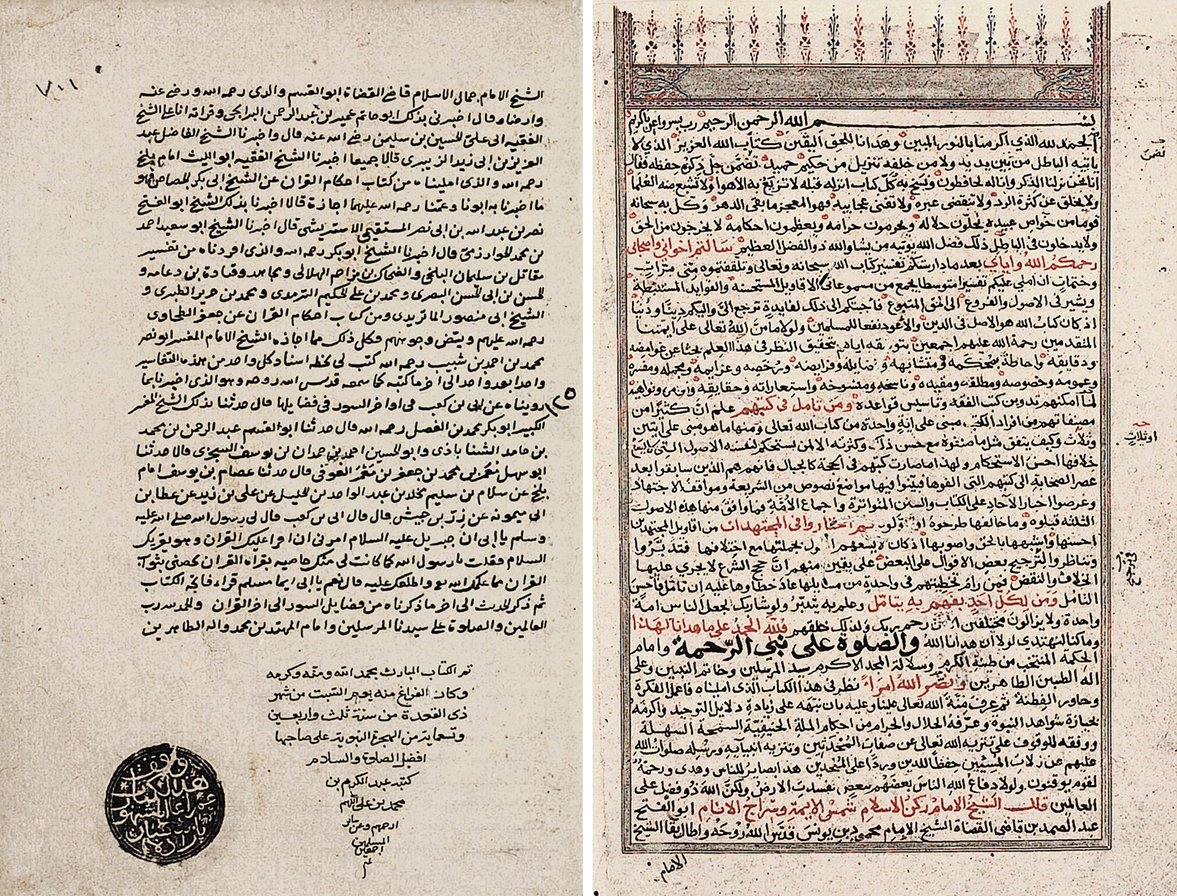 بسم الله الرحمن الرحيم رب يسر
الحمد لله الذي اكرمنا بالنور المبين وهدانا للحق اليقين كتاب الله العزيز الذي لا
ياتيه الباطل من بين يديه ولا من خلفه تنزيل من حكيم حميد تضمن جل ذكره حفظه فقال
انا نحن نزلنا الذكر وانا له لحافظون ونسخ به كل كتاب انزله قبله لا تزيغ به الاهوا ولا تشبع منه العلما
ولا يخلق عن كثرة الرد ولا تنقضي عبره ولا تفنى عجايبه فهو المعجز ما بقي الدهر وكل به سبحانه
قوما من خواص عبيده يحلون حلاله ويحرمون حرامه ويعظمون احكامه لا يخرجون من الحق
ولا يدخلون في الباطل ذلك فضل الله يوتيه من يشا والله ذو الفضل العظيم سالتم اخواني واصحابي
رحمكم الله واياي بعد ما دارستكم تفسير كتاب الله سبحانه وتعالى وتلقفتموه مني مرات
وختمات ان املي عليكم تفسيرا متوسطا يجمع من مسموعاتي الاقاويل المستحسنة والفوايد المستنبطة
ويشير في الاصول والفروع الى الحق المتبوع فاجبتكم الى ذلك لفايدة ترجع الي واليكم دينا ودنيا
اذ كان كتاب الله هو الاصل في الدين والاعود نفعا للمسلمين ولولا ما من الله تعالى على ايمتنا
المتقدمين رحمة الله عليهم اجمعين بتوفيقه اياهم بتحقيق النظر في هذا العلم بحثا عن غوامضه
ودقايقه واحاطة بمحكمه ومتشابهه وفضايله وفرايضه ورخصه وعزايمه ومجمله ومفسره
وعمومه وخصوصه ومطلقه ومقيده وناسخه ومنسوخه واستعاراته وحقايقه واوامره ونواهيه
لما امكنهم تدوين كتب الفقه وتاسيس قواعده ومن تامل في كتبهم علم ان كثيرا من
مصنفاتهم من افراد الكتب مبني على اية واحدة من كتاب الله تعالى ومنها ما هو مبني على ايتين
وثلاث وكيف يتفق مثل ما صنفوه مع حسن ذلك وكثرته الا لمن استحكم لنفسه الاصول
خلافها احسن الاستحكام ولهذا صارت كتبهم في الحجة كالجبال فانهم هم الذين سابقوا بعد
عصر الصحابة الى كتبهم التي الفوها فبينوا فيها مواضع نصوص من الشريعة ومواقف الاجتهاد
وعرضوا اخبار الاحاد على الكتاب والسنن المتواترة واجماع الامة فما وافق منها هذه الاصول
الثلثة قبلوه وما خالفها طرحوه او اولوه ثم اختاروا في المجتهدات من اقاويل المجتهدين
احسنها واشبهها بالحق واصوبها اذ كان لا يسعهم القول بجملتها مع اختلافها فتدبروا
وتناظروا لترجيح بعض الاقوال على البعض على يقين منهم ان حجج الشرع لا يجري عليها
الخلاف والنقض فمن راى تخطيتهم في واحدة من مسايلها عاد خطاوها عليه ان تامل فاحسن
التامل ومن لكل احد بفهم به يتامل وعلم به يتدبر ولو شا ربك لجعل الناس امة
واحدة ولا يزالون مختلفين الا من رحم ربك ولذلك خلقهم فلله الحمد على ما هدانا لهذا
وما كنا لنهتدي لولا ان هدانا الله والصلوة على نبي الرحمة وامام
الحكمة المنتخب من طينة الكرم وسلالة المجد الاكرم سيد المرسلين وخاتم النبيين وعلى
اله الطيبين الطاهرين ونضر الله امرا نظر في هذا الكتاب الذي امليناه فاعمل الفكرة
وحاور الفطنة ثم عرف منة الله تعالى علينا وعليه بان نبهه على زيادة دلايل التوحيد واكرمه
بحيازة شواهد النبوة وعرفه الحلال والحرام من احكام الملة الحنيفية السمحة السهلة
ووفقه للوقوف على تنزيه الله تعالى عن صفات المحدثين وتنزيه انبيايه ورسله صلوات الله
عليهم عن زلات المسيئين حفظا للدين وردا على الملحدين هذا بصاير للناس وهدى ورحمة
لقوم يوقنون ولولا دفاع الله الناس بعضهم ببعض لفسدت الارض ولكن الله ذو فضل على
العالمين قال الشيخ الامام ركن الاسلام شمس الايمة وسراج الانام ابو الفتح
عبد الصمد بن قاضي القضاة الشيخ الامام محمود بن يونس قدس الله روحه واطال بقا الشيخ
الامام
تضمن
او ثلاث
الشيخ الامام جمال الاسلام قاضي القضاة ابو القسم والدي رحمه الله ورضي عنه
وارضاه قال اخبرني بذلك ابو حاتم عمير بن عبد الرحمن وقراته انا على الشيخ
الفقيه ابي علي الحسين بن سليمن رضي الله عنه قال واخبرنا الشيخ الفاضل عبد
العزيز بن ابي زيد قالا جميعا اخبرنا الشيخ الفقيه ابو الليث امام بلخ
رحمه الله والذي امليناه من كتاب احكام القران عن الشيخ ابي بكر الجصاص فهو
ما اخبرنا به ابونا وعمنا رحمة الله عليهما اجازة قالا اخبرنا بذلك الشيخ ابو الفتح
نصر بن عبد الله بن ابي نصر قال اخبرنا الشيخ ابو سعيد احمد
بن محمد الخوارزمي قال اخبرنا الشيخ ابو بكر رحمه الله والذي اوردناه من تفسير
مقاتل بن سليمان البلخي والضحاك بن مزاحم الهلالي ومجاهد وقتادة بن دعامه و
الحسن بن ابي الحسن البصري ومحمد بن علي الحكيم الترمدي ومحمد بن جرير الطبري و
الشيخ ابي منصور الماتريدي ومن كتاب احكام القران عن جعفر الطحاوي
رحمة الله عليهم وبيض وجوههم فكل ذلك مما اجازه الشيخ الامام المفسر ابو نصر
محمد بن احمد بن شبيب رحمه الله كتب لي بخطه اسناد كل واحد من هذه التفاسير
واحدا بعد واحد الى اخر ما كتبه كما سمعه قدس الله روحه وهو الذي اخبرنا بما
رويناه عن ابي بن كعب في اواخر السور في فضايلها قال حدثنا بذلك الشيخ المعمر
الكبير ابو بكر محمد بن الفضل رحمه الله قال حدثنا ابو القسم عبد الرحمن بن محمد
بن حامد وابو الحسين احمد بن حمدان بن يوسف السجزي قالا حدثنا
ابو سهل بن محمد بن جعفر بن العوفي قال حدثنا عصام بن يوسف امام
بلخ عن سلام بن سليم مخلد بن عبد الواحد بن الخليل عن علي بن زيد عن عطا بن
ابي ميمونه عن زر بن حبيش قال قال ابي بن كعب قال لي رسول الله صلى الله عليه
وسلم يا ابي ان جبريل عليه السلام امرني ان اقرا عليك القران وهو يقريك
السلام فقلت يا رسول الله كما كانت لي منك خاصيه بقراة القران فخصني بثواب
القران مما علمك الله واطلعك عليه قال نعم يا ابي ايما مسلم قراء فاتحة الكتاب
ثم ذكر الحديث الى اخر ما ذكرناه من فضايل السور الى اخر القران والحمد لله رب
العالمين والصلوة على سيدنا المرسلين وامام المهتدين محمد واله الطاهرين
تم الكتاب المبارك بحمد الله ومنه وكرمه
وكان الفراغ منه يوم السبت من شهر
ذي القعدة من سنة ثلث واربعين
وتسعماية من الهجرة النبوية على صاحبها
افضل الصلوة والسلام
كتبه عبد الكريم بن
محمد بن علي اللهم
ارحمهم وعن ساير
المسلمين
اجمعين